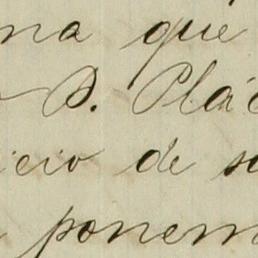 na que
D. Plác
icio de su
ponem